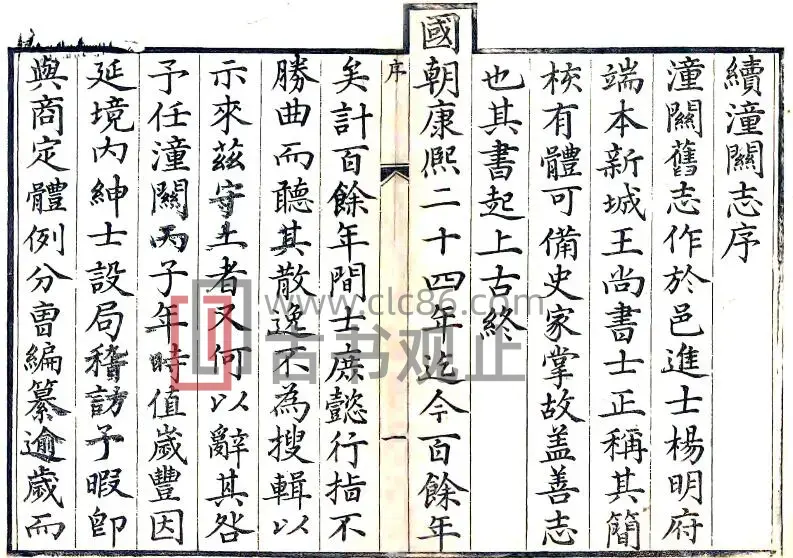 續潼關志序
潼關舊志作於邑進士楊明府
端本新城王尚書士正稱其簡
核有體可備史家掌故盖善志
也其書起上古終
國朝康熙二十四年迄今百餘年
序
一
矣計百餘年間士庶懿行指不
勝曲而聽其散逸不為搜輯以
示來茲守土者又何以辭其咎
予任潼關丙子年時值歲豐因
延境內紳士設局稽訪予暇卽
與商定體例分曹編纂逾歲而
www.clc86.com
古书观正